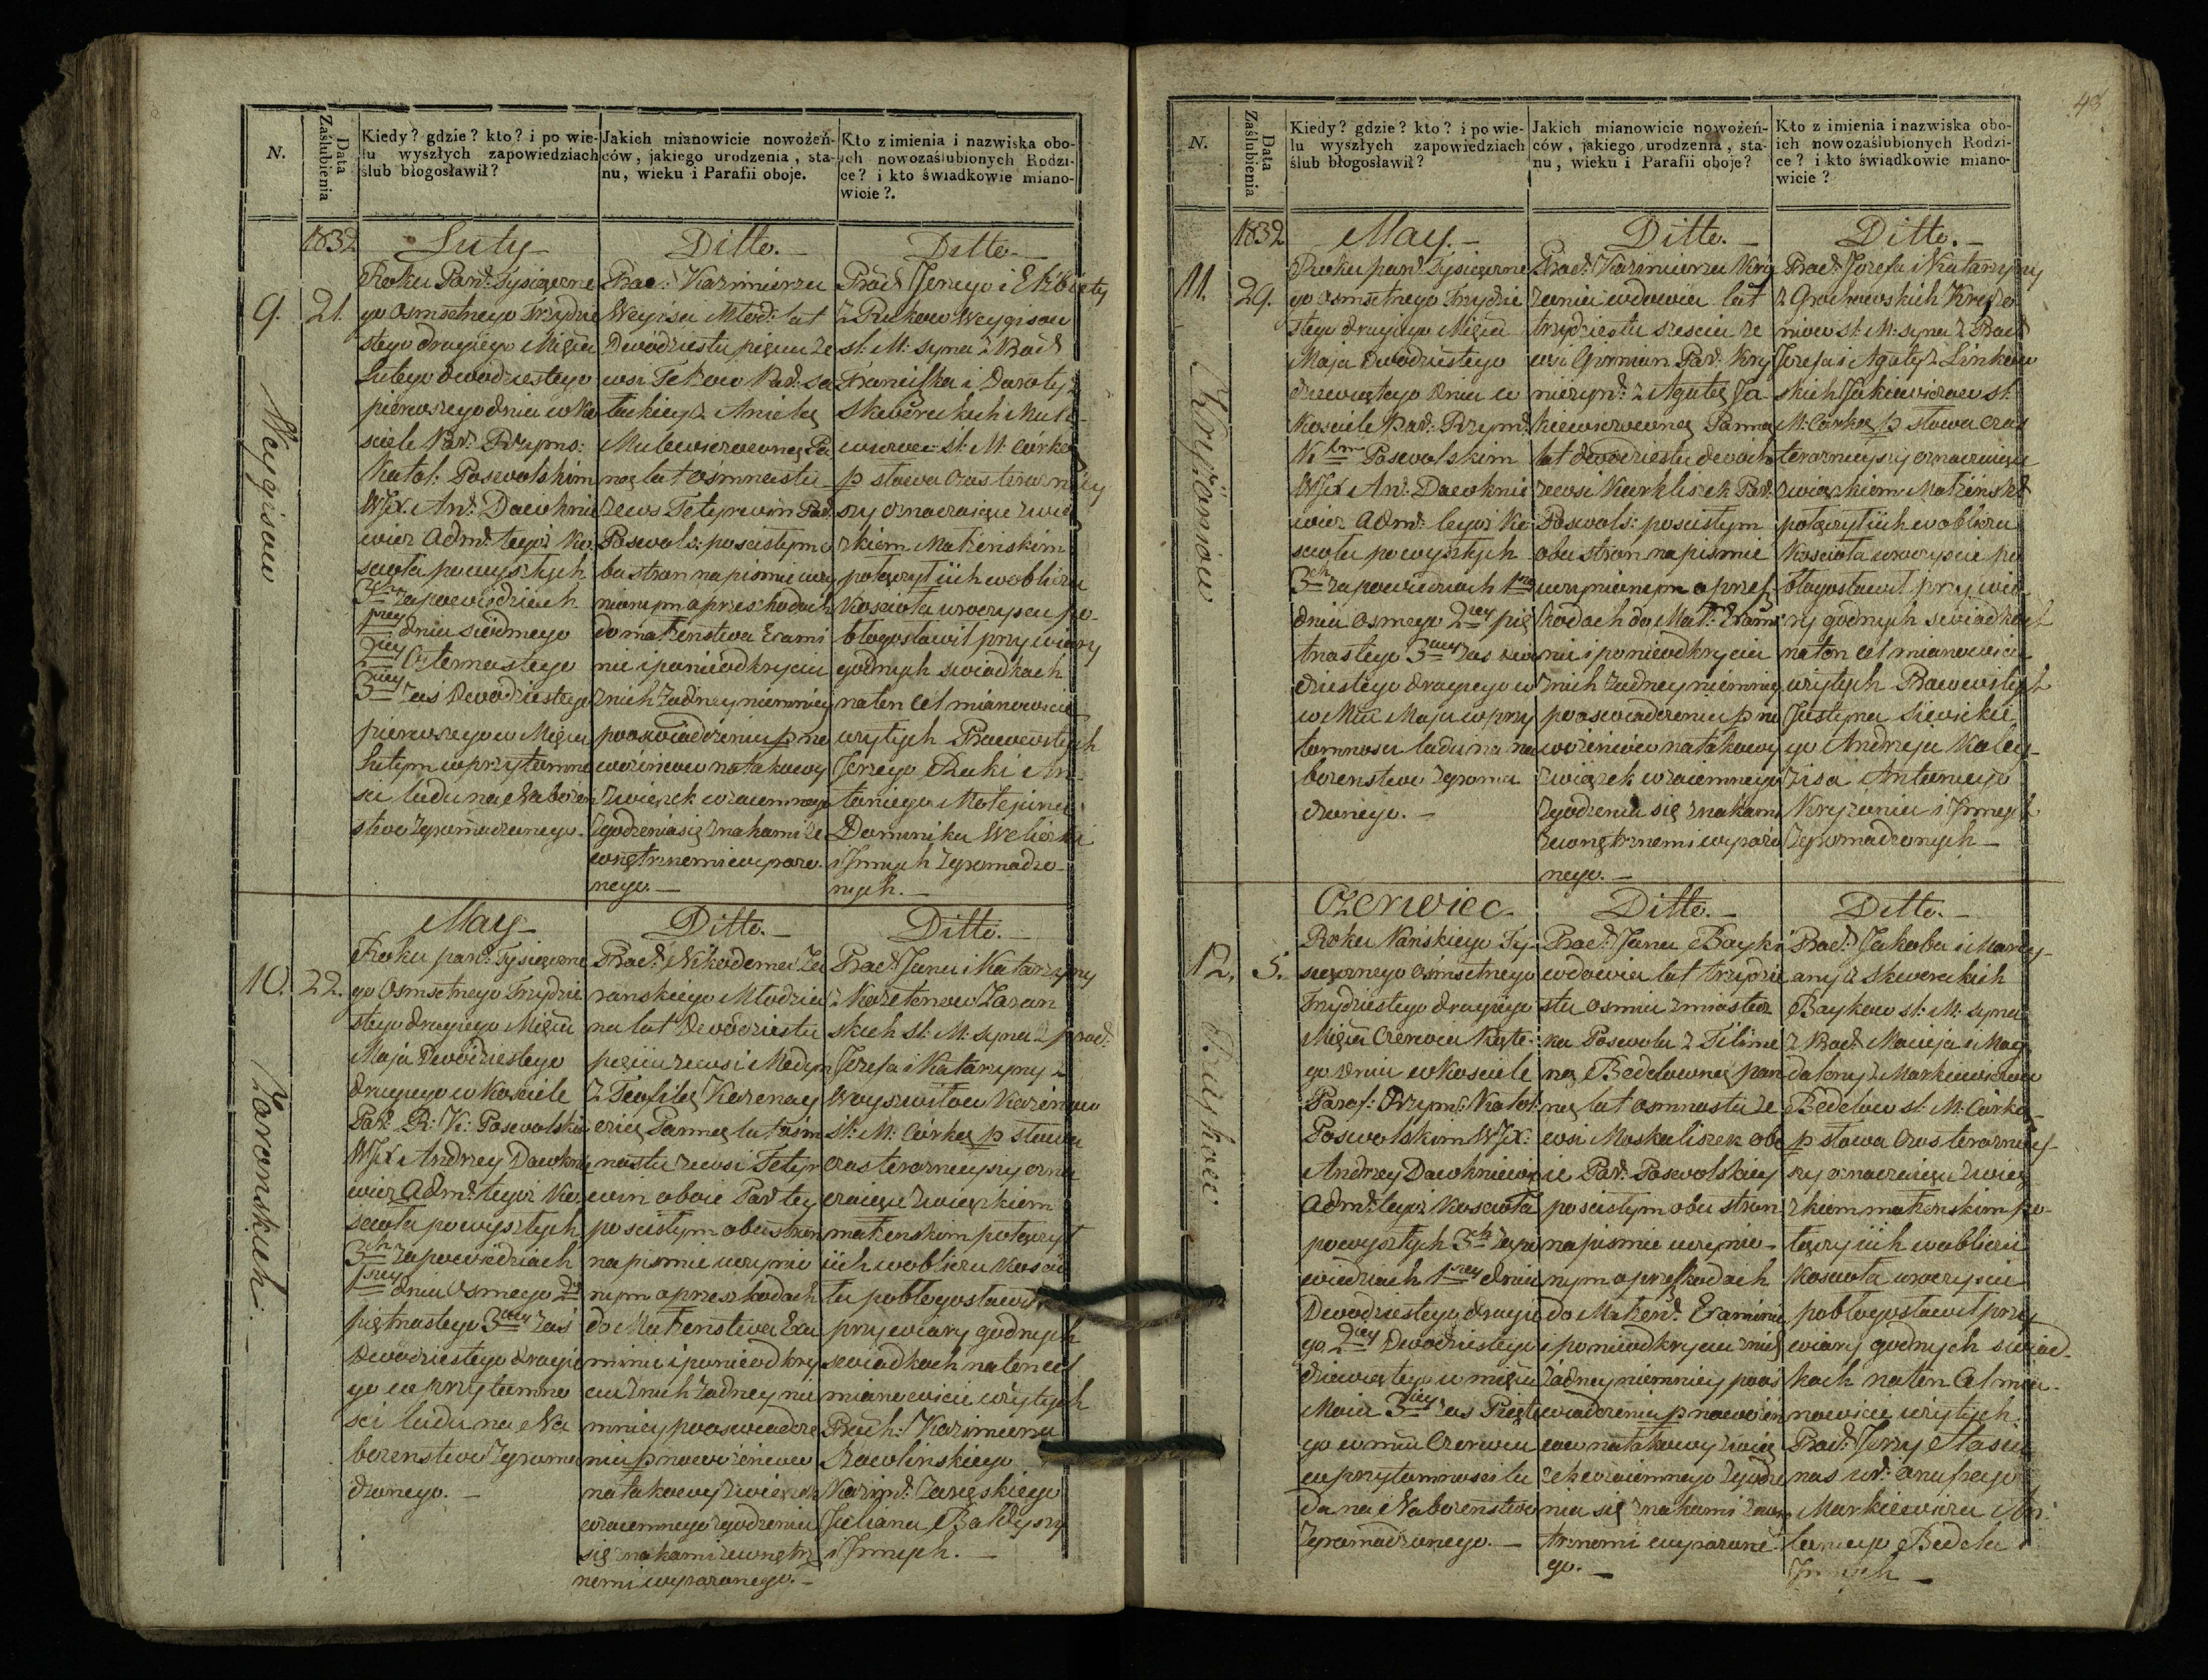 N.
Data Zaślubienia
Kiedy? gdzie? kto? i po wie-
lu wyszłych zapowiedziach
ślub błogosławił?
Jakich mianowicie nowożeń-
ców, jakiego urodzenia, sta-
nu, wieku i Parafii oboje.
Kto z imienia i nazwiska obo-
ich nowozaślubionych Rodzi-
ce? i kto świadkowie miano-
wicie?.
1832
9.
21.
Weygisow
Luty
Roku Pań: Tysiączne
go Osmsetnego Trzydzie
stego drugiego Miąca
Lutego dwódziestego
pierwszego dnia w Ko
sciele Par: Rzyms:
Katol: Poswolskim
WJX And: Dawknie
wicz Adm: tegoż Ko
scioła po wyszłych
3ch zapowiedziach
1szey dnia siódmego
2giey Czternastego
3ciey zaś Dwódziestego
pierwszego w Miącu
Lutym w przytomno
sci ludu na Nabożeń
stwo zgromadzonego.
Ditto.
Prac: Kazimierza
Weyisa Młodz: lat
Dwódziestu pięciu ze
wsi
z Anielą
Mulewiczowną Pa
ną lat ośmnastu
zewsi Tetyrwin Par:
Poswols: po scisłym o
bu stron na pismie uczy
nionym o przeszkodach
do małżenstwa Exami
nie i po nieodkryciu
z nich żadney niemniey
po oswiadczeniu p no
wożeńcow na takowy
związek wzaiemnego
zgodzenia się znakami ze
wnętrznemi wyrażo
nego.
Ditto.
Prac: Jerzego i Elżbiety
z Rukow Weygisow
sł: M: syna z Prac:
Franciszka i Doroty z
Skworeckich Mule-
wiczow sł: M: Córkę
p słowa Czas terazniey
szy oznaczaiące zwią
zkiem Małżeńskim
połączył iich w obliczu
Koscioła uroczyscie po-
błogosławił przy wiary
godnych swiadkach
na ten cel mianowicie
użytych Pracowitych
Jerzego Ruki An-
toniego Motejuna
Dominika
i Jnnych zgromadzo-
nych.
10.
22.
Zaranskich
May
Roku pań: Tysiączne
go Osmsetnego Trzydzie
stego drugiego Miąca
Maja Dwódziestego
drugiego w Kosciele
Par: R: K: Poswolskim
WJX Andrzey Dawknie
wicz Adm: tegoż Ko
scioła po wyszłych
3ch zapowiedziach
1szey dnia Osmego 2
piętnastego 3ciey zaś
Dwodziestego drugie
go w przytomno
sci ludu na Na
bożenstwo zgroma
dzonego.
Ditto.
Prac: Nikodema Za
ranskiego Młodzia
na lat Dwódziestu
pięciu zewsi
z Teofilą
Panną lat osm
nastu zewsi Tetyr
win oboie Par: tey
po scisłym obu stron
na pismie uczynio
nym o przeszkodach
do Małżenstwa Exa
minie i po nieodkry
ciu z nich żadney nie
mniey po oswiadcze
niu p nowożeńcow
na takowy związek
wzaiemnego zgodzenia
się znakami zewnętrz
nemi wyrażonego.
Ditto.
Prac: Jana i Katarzyny
Zaran
skich sł: M: syna z prac:
Jozefa i Katarzyny z
sł: M: Córkę p słowa
czas teraznieyszy ozna
czaiące związkiem
małżenskim połączył
iich w obliczu Koscio
ła pobłogosławił
przy wiary godnych
swiadkach na ten cel
mianowicie użytych
Prach: Kazimierza
Rawlinskiego
Kazim:
Juliana
i Jnnych.
43
N.
Data Zaślubienia
Kiedy? gdzie? kto? i po wie-
lu wyszłych zapowiedziach
ślub błogosławił?
Jakich mianowicie nowożeń-
ców, jakiego urodzenia, sta-
nu, wieku i Parafii oboje?
Kto z imienia i nazwiska obo-
ich nowozaślubionych Rodzi-
ce? i kto świadkowie miano-
wicie?
1832
11.
29.
Kryżoniow
May.
Roku pań: Tysiączne
go osmsetnego Trzydzie
stego drugiego Miąca
Maja Dwódziestego
dziewiątego dnia w
Kosciele Par: Rzym:
Poswolskim
WJX An: Dawknie
wicz Adm: tegoż Ko
scioła po wyszłych
3ch zapowiedziach
dnia Osmego 2giey pię
tnastego 3ciey zas dwu
dziestego drugiego w
w Mcu Maju w przy
tomnosci ludu na na
bożenstwo zgroma
dzonego.
Ditto.
Prac: Kazimierza Kry
żonia wdowca lat
trzydziestu szesciu ze
wsi Par: Kry
z Agatą Ja
kiewiczowną Panną
lat dwódziestu dwóch
zewsi Kurkliszek Par:
Poswols: po scisłym
obu stron na pismie
uczynionym o przesz
kodach do Mał: Exami
nie i po nieodkryciu
z nich żadney niemniey
po oswiadczeniu p no
wożeńców na takowy
związek wzaiemnego
zgodzenia się znakami
zewnętrznemi wyrażo
nego.
Ditto.
Prac: Jozefa i Katarzyny
z Grochowskich Kryżo
niow sł: M: syna z Prac:
Jozefa i Agaty z Linkow
skich Jakiewiczow sł:
M: Córkę p słowa czas
teraznieyszy oznaczaiące
związkiem Małżeńsk:
połączył iich w obliczu
Koscioła uroczyscie po
błogosławił przy wia
ry godnych swiadkach
na ten cel mianowicie
użytych Pracowitych
Justyna
go Andrzeja
Antoniego
Kryżonia i Jnnych
Zgromadzonych
12.
5.
Baykow
Czerwiec.
Roku Pańskiego Ty-
siącznego Osmsetnego
Trzydziestego drugiego
Miąca Czerwca Piąte-
go dnia w Kosciele
Paraf: Rzym: Katol:
Poswolskim WJX.
Andrzey Dawkniewicz
Adm: tegoż Koscioła
po wyszłych 3ch zapo
wiedziach 1szey dnia
Dwodziestego drugie
go 2giey Dwodziestego
dziewiątego w miącu
Maiu 3ciey zas Piąte
go w mcu Czerwcu
w przytomnosci lu
du na Nabożenstwo
zgromadzonego.
Ditto.
Prac: Jana Bayki
wdowca lat trzydzie
stu osmiu z miastecz
ka Poswola z
ną Bedelowną pan
ną lat osmnastu ze
wsi Moskaliszek obo
ie Par: Poswolskiey
po scisłym obu stron
na pismie uczynio-
nym o przeszkodach
do Małżeń: Examinie
i po nieodkryciu z nich
żadney niemniey po os
wiadczeniu p nowożen
cow na takowy zwią
zek wzaiemnego zgodze
nia się znakami zewn
trznemi wyrażone
go.
Ditto.
Prac: Jakoba i Mary-
any z Skworeckich
Baykow sł: M: syna
z Prac: Macieja i Mag
daleny z Markiewiczow
Bedelow sł: M: Córkę
p słowa Czas terazniey-
szy oznaczaiące zwią
zkiem małżenskim po-
łączył iich w obliczu
Koscioła uroczyscie
pobłogosławił przy
wiary godnych swiad-
kach na ten Cel mia-
nowicie użytych.
Prac: Jerzy Stasiu
nas Onufrego
Markiewicza An-
toniego Bedela i
Jnnych